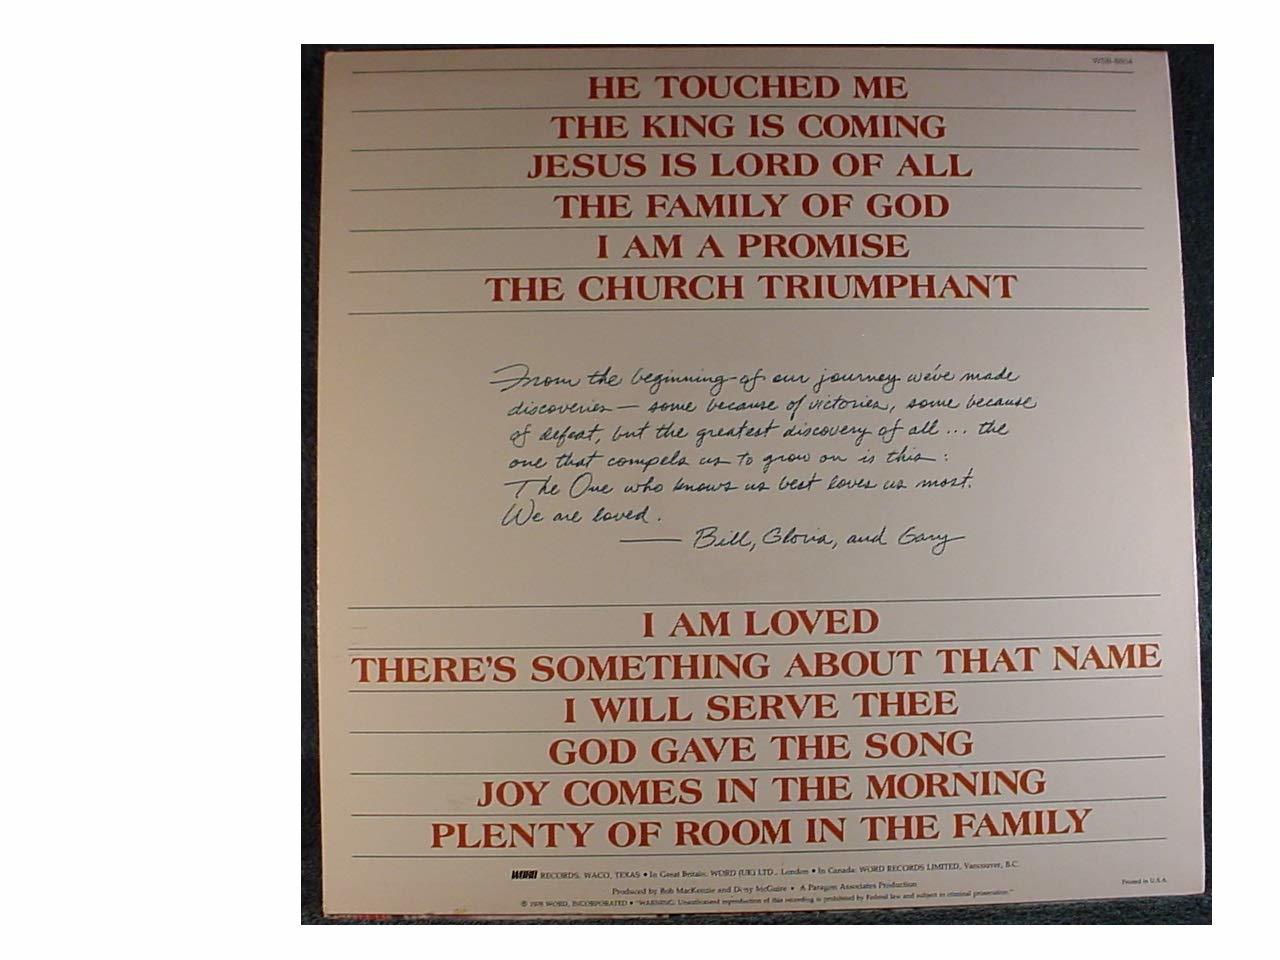 WSB-8804
HE TOUCHED ME
THE KING IS COMING
JESUS IS LORD OF ALL
THE FAMILY OF GOD
I AM A PROMISE
THE CHURCH TRIUMPHANT
From the beginning of our journey we've made
discoveries — some because of victories, some because
of defeat, but the greatest discovery of all ... the
one that compels us to grow on is this:
The One who knows us best loves us most.
We are loved.
— Bill, Gloria, and Gary
I AM LOVED
THERE'S SOMETHING ABOUT THAT NAME
I WILL SERVE THEE
GOD GAVE THE SONG
JOY COMES IN THE MORNING
PLENTY OF ROOM IN THE FAMILY
WORD RECORDS, WACO, TEXAS • In Great Britain: WORD (UK) LTD., London • In Canada: WORD RECORDS LIMITED, Vancouver, B.C.
Produced by Bob MacKenzie and Dony McGuire • A Paragon Associates Production
Printed in U.S.A.
© 1978 WORD, INCORPORATED • "WARNING: Unauthorized reproduction of this recording is prohibited by Federal law and subject to criminal prosecution."